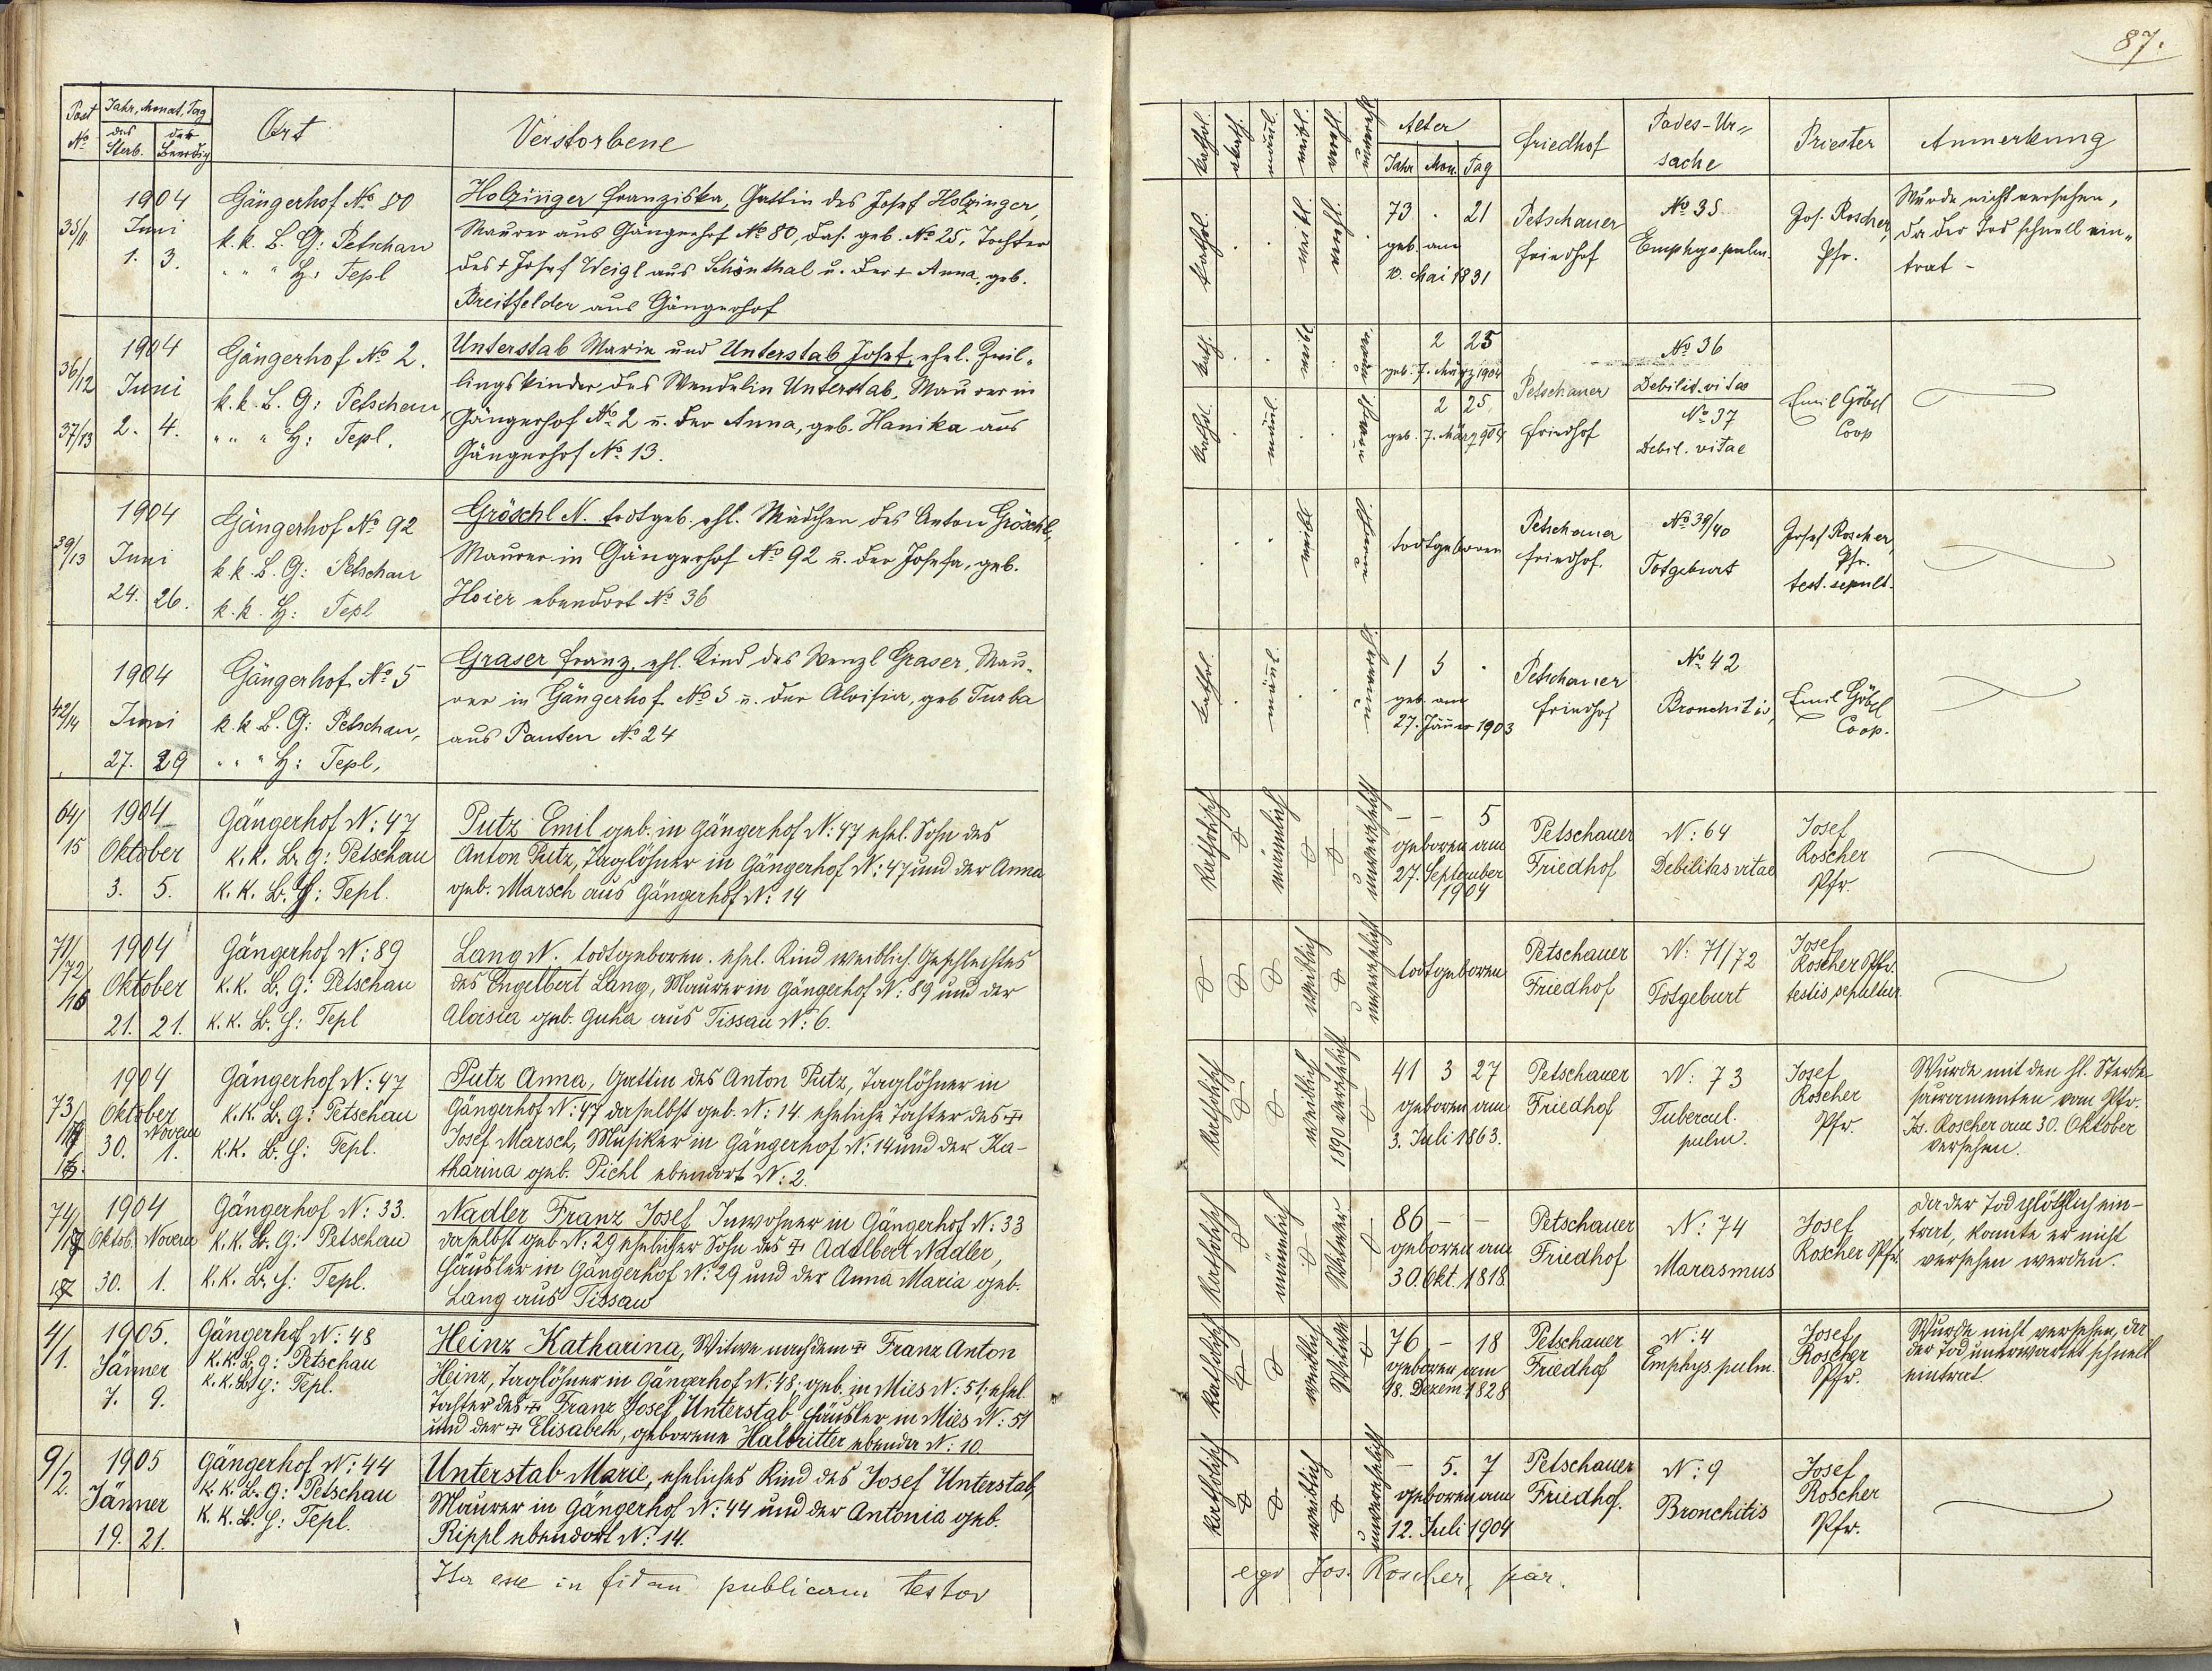 87.
Post No
Jahr, Monat, Tag
des Sterb.
der Beerdig
Ort
Verstorbene
kathol.
akath.
männl.
weibl.
verehl.
unverehl.
Alter
Jahr Mon. Tag
Friedhof
Todes-Ur„
sache
Priester
Anmerkung
35/11
1904
Juni
1. 3.
Gängerhof No 80
k. k. B. G: Petschau
" " " H: Tepl
Holzinger Franziska, Gattin des Josef Holzinger,
Maurer aus Gängerhof No 80, das. geb. No 25, Tochter
des + Josef Weigl aus Schönthal u. der + Anna, geb.
Breitfelder aus Gängerhof
kathol.
weibl.
verehl.
73 . 21
geb. am
10. Mai 1831
Petschauer
Friedhof
No 35
Emphys. pulm.
Jos. Roscher,
Pfr.
Wurde nicht versehen,
da der Tod schnell ein„
trat -
36/12
37/13
1904
Juni
2. 4.
Gängerhof No 2.
k. k. B. G: Petschau
" " " H: Tepl.
Unterstab Marie und Unterstab Josef, ehel. Zwil„
lingskinder des Wendelin Unterstab, Maurer in
Gängerhof No 2 u. der Anna, geb. Hanika aus
Gängerhof No 13.
kath.
weibl
kathol.
männl.
2 25
geb. 7. März 1904
2 25,
geb. 7. März 904
Petschauer
Friedhof
No 36
Debilit. vitae
No 37
Debil. vitae
Emil Göbel
Coop
39/13
1904
Juni
24. 26.
Gängerhof No 92
k. k. B. G: Petschau
k. k. H: Tepl
Gröschl N. todtgeb. ehl. Mädchen des Anton Gröschl,
Maurer in Gängerhof No 92 u. der Josefa, geb.
Hoier ebendort No 36
weibl
todtgeboren
Petschauer
Friedhof.
No 39/40
Totgeburt
Josef Roscher,
Pfr.
test. sepult.
42/14
1904
Juni
27. 29
Gängerhof No 5
k. k. B. G: Petschau,
" " " H: Tepl,
Graser Franz, ehl. Kind des Wenzl Graser, Mau„
rer in Gängerhof No 5 u. der Aloisia, geb Turba
aus Pauten No 24
kathol.
männl.
1 5 .
geb. am
27. Jänner 1903
Petschauer
Friedhof
No 42
Bronchitis,
Emil Göbel
Coop.
64/15
1904
Oktober
3. 5.
Gängerhof N: 47
k. k. B. G: Petschau
k. k. B. H: Tepl.
Putz Emil geb. in Gängerhof N: 47 ehel. Sohn des
Anton Putz, Taglöhner in Gängerhof N: 47 und der Anna
geb. Marsch aus Gängerhof N: 14
katholisch
männlich
unverehelicht
– – 5
geboren am
27. September
1904
Petschauer
Friedhof
N: 64
Debilitas vitae
Josef
Roscher
Pfr.
71/72/16
1904
Oktober
21. 21.
Gängerhof N: 89
k. k. B. G: Petschau
k. k. B. H: Tepl
Lang N. todtgeboren. ehel. Kind weiblich. Geschlechtes
des Engelbert Lang, Maurer in Gängerhof N: 89 und der
Aloisia geb. Guha aus Tissau N: 6.
weiblich
unverehelicht
todtgeboren
Petschauer
Friedhof
N: 71/72
Totgeburt
Josef
Roscher Pfr.
testis sepultur.
73/
1904
Oktober
Novem
30. 1.
Gängerhof N: 47
k. k. B. G: Petschau
k. k. B. H: Tepl.
Putz Anna, Gattin des Anton Putz, Taglöhner in
Gängerhof N: 47 daselbst geb. N: 14 eheliche Tochter des +
Josef Marsch, Musiker in Gängerhof N: 14 und der Ka-
tharina geb. Pichl ebendort N: 2.
katholisch
weiblich
1890 verehelicht
41 3 27
geboren am
3. Juli 1863.
Petschauer
Friedhof
N: 73
Tubercul.
pulm.
Josef
Roscher
Pfr.
Wurde mit den hl. Sterbe-
sacramenten vom Pfr.
Jos. Roscher am 30. Oktober
versehen.
74/
1904
Oktob. Novem
30. 1.
Gängerhof N: 33.
k. k. B. G: Petschau
k. k. B. H: Tepl.
Nadler Franz Josef Inwohner in Gängerhof N: 33
daselbst geb N: 29 ehelicher Sohn des + Adalbert Nadler,
Häusler in Gängerhof N: 29 und der Anna Maria geb.
Lang aus Tissau
katholisch
männlich
Witwer
86 – –
geboren am
30. Okt. 1818
Petschauer
Friedhof
N: 74
Marasmus
Josef
Roscher Pfr.
Da der Tod plötzlich ein-
trat, konnte er nicht
versehen werden.
4/1.
1905.
Jänner
7. 9.
Gängerhof N: 48
k. k. B. G: Petschau
k. k. B. H: Tepl.
Heinz Katharina, Witwe nach dem + Franz Anton
Heinz, Taglöhner in Gängerhof N: 48; geb. in Mies N: 51, ehel.
Tochter des + Franz Josef Unterstab Häusler in Mies N: 51
und der + Elisabeth, geborene Halbritter ebenda N: 10.
katholisch
weiblich
Witwe
76 – 18
geboren am
18. Dezem 1828
Petschauer
Friedhof
N: 4
Emphys. pulm.
Josef
Roscher
Pfr.
Wurde nicht versehen, da
der Tod unerwartet schnell
eintrat
9/2.
1905
Jänner
19. 21.
Gängerhof N: 44
k. k. B. G: Petschau
k. k. B. H: Tepl.
Unterstab Marie, eheliches Kind des Josef Unterstab,
Maurer in Gängerhof N: 44 und der Antonia geb.
Rippl ebendort N: 14.
katholisch
weiblich
unverehelicht
– 5. 7
geboren am
12. Juli 1904
Petschauer
Friedhof.
N: 9
Bronchitis
Josef
Roscher
Pfr.
Ita esse in fidem publicam testor
ego Jos. Roscher, par.